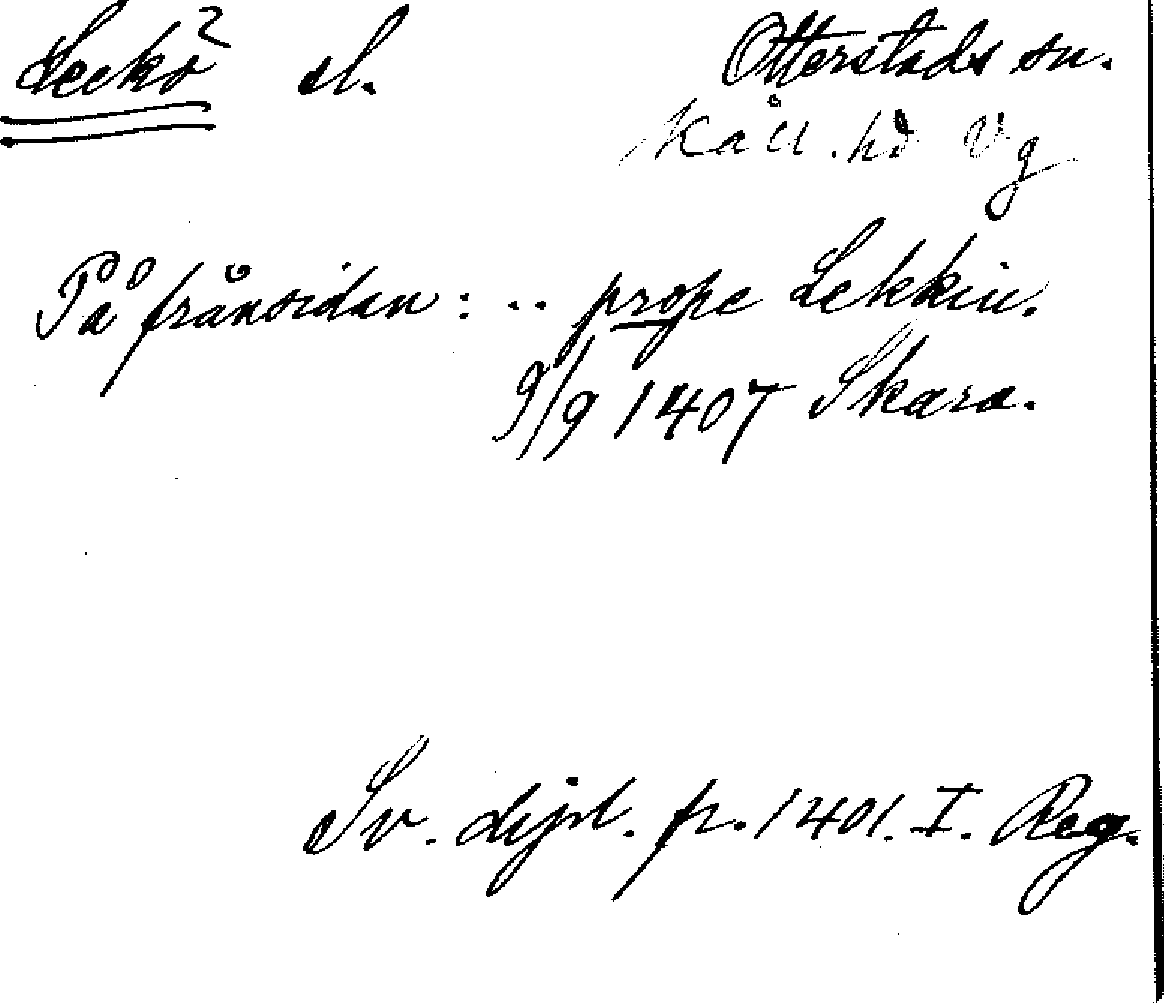 Leckö sl. Otterstads sn.
Kåll. hd Vg
På frånsidan: .. prope Lekkiu.
9/9 1407 Skara.
Sv. dipl. fr. 1401. I. Reg.